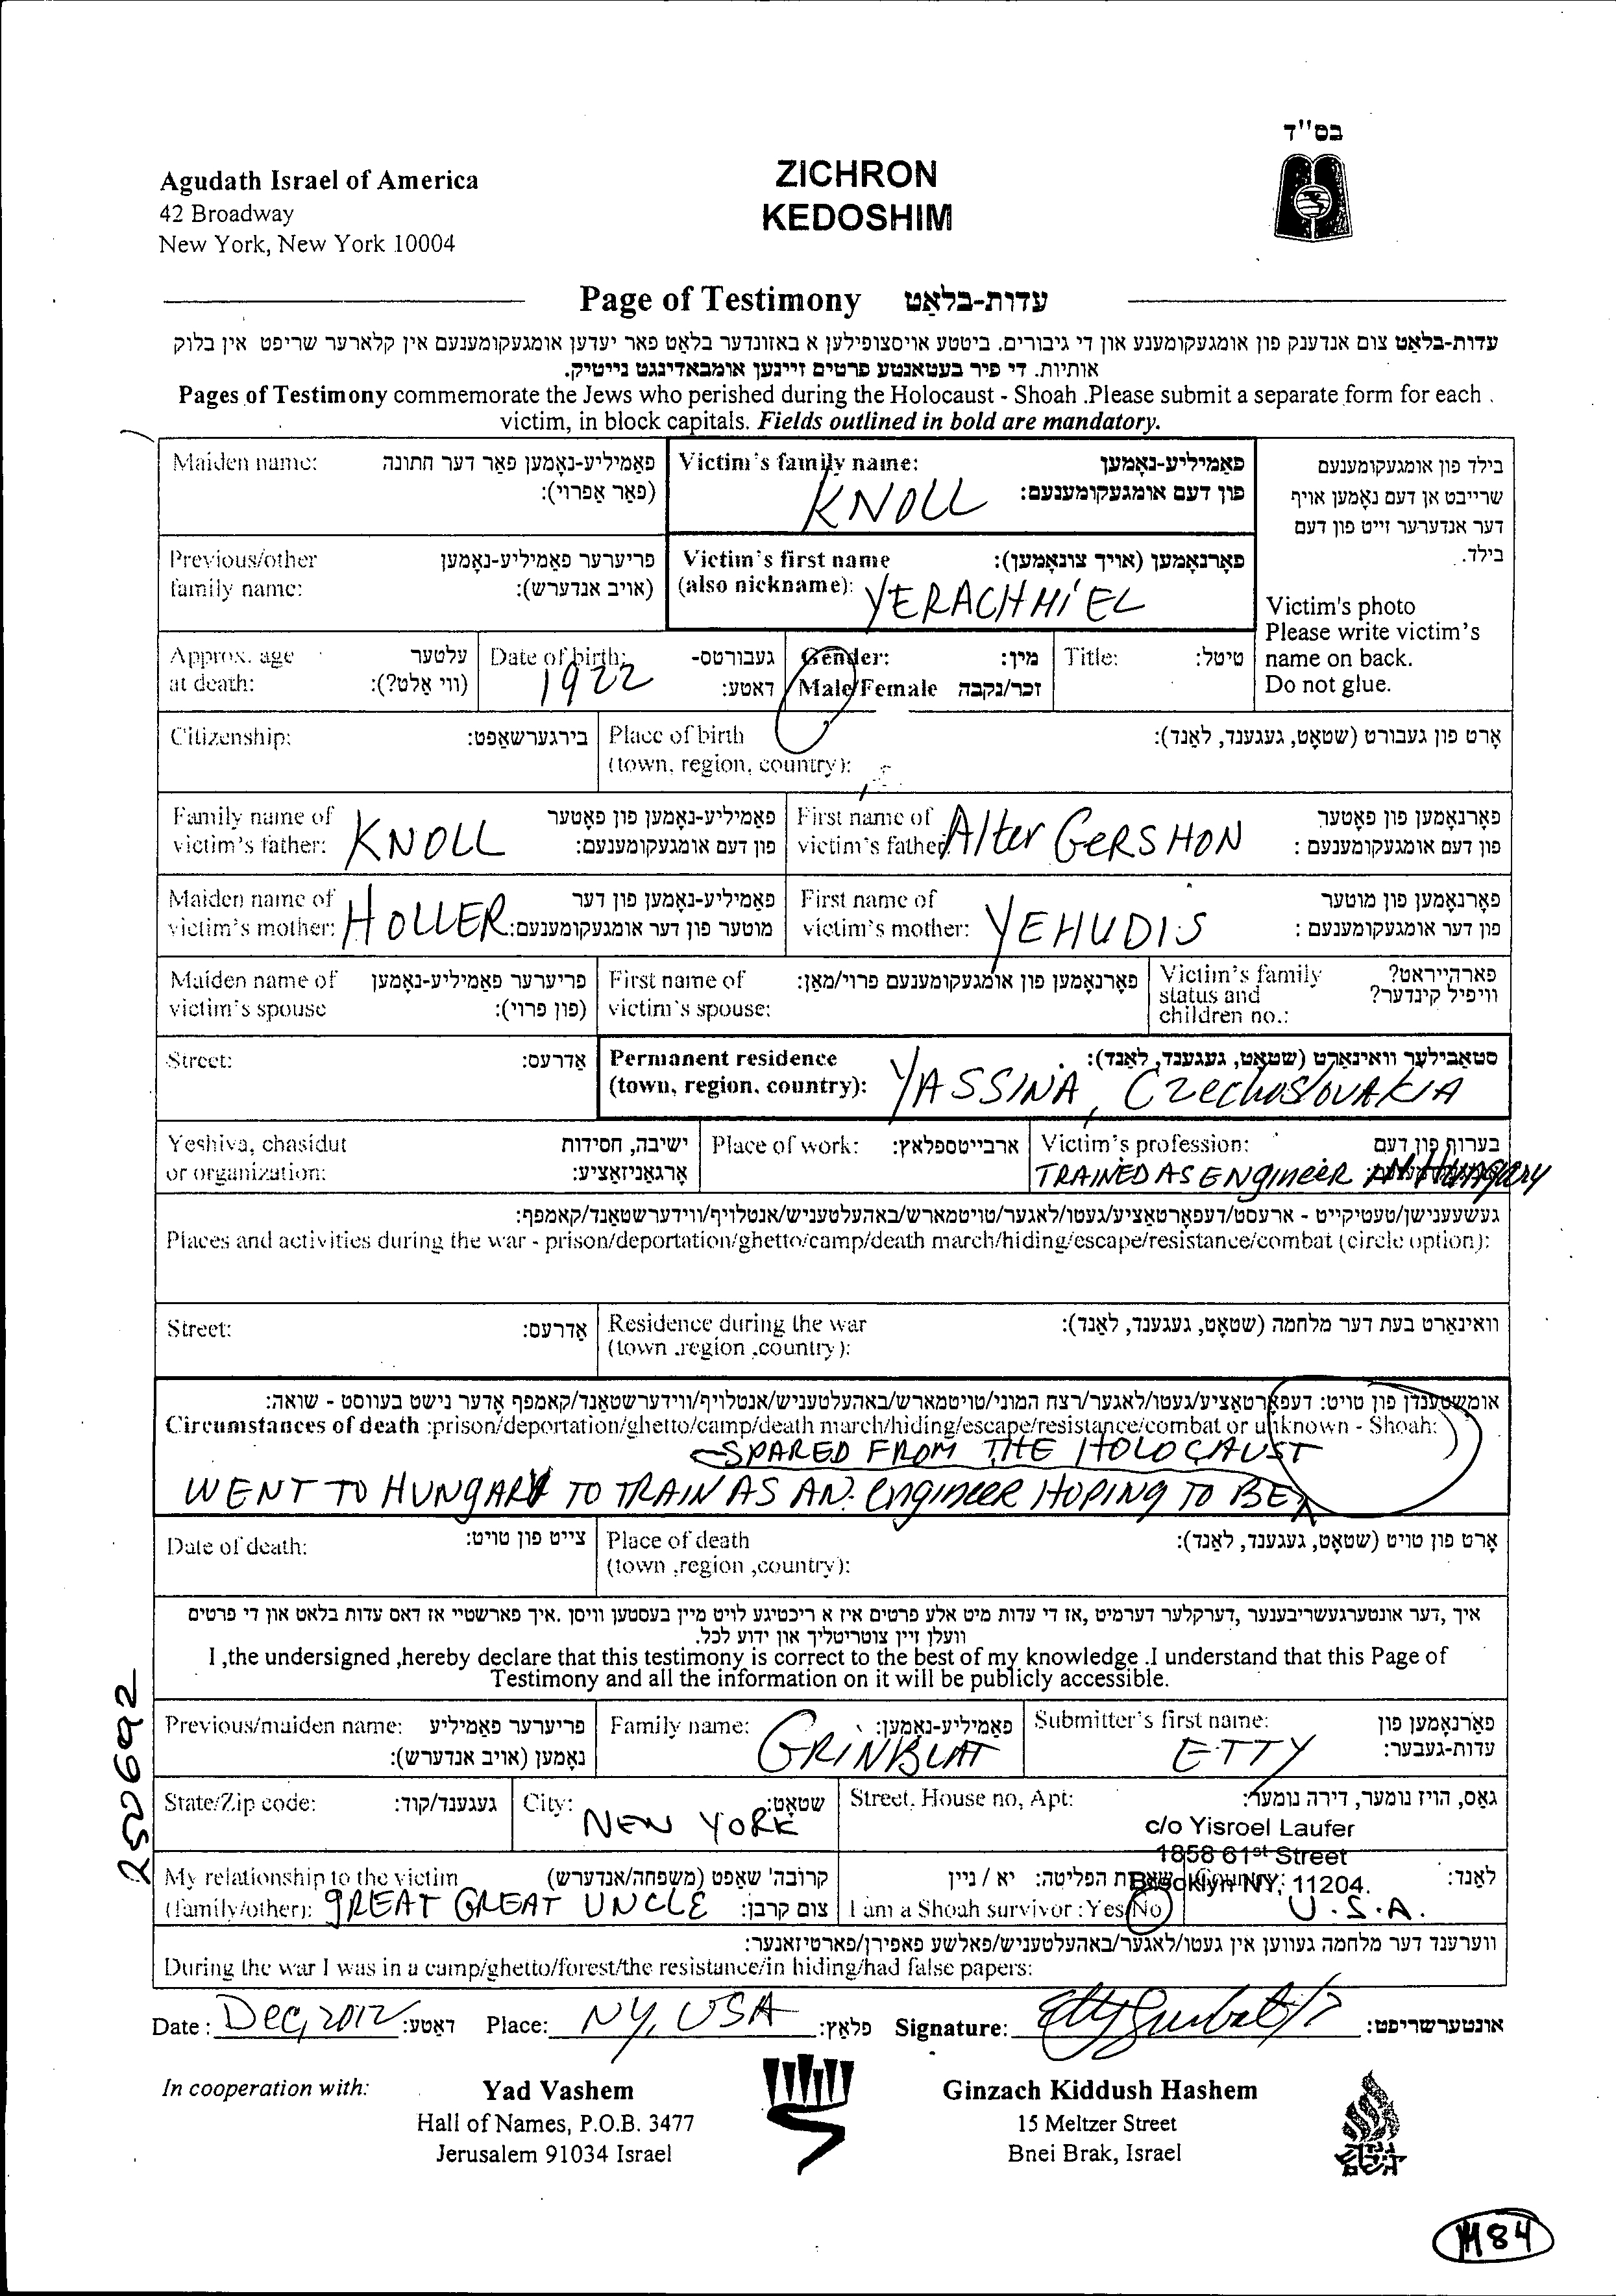 בס"ד
Agudath Israel of America
42 Broadway
New York, New York 10004
ZICHRON
KEDOSHIM
Page of Testimony עדות-בלאַט
עדות-בלאַט צום אנדענק פון אומגעקומענע און די גיבורים. ביטטע אויסצופילען א באזונדער בלאט פאר יעדען אומגעקומענעם אין קלארער שריפט אין בלוק
אותיות. די פיר בעטאנטע פרטים זיינען אומבאדינגט נייטיק.
Pages of Testimony commemorate the Jews who perished during the Holocaust - Shoah .Please submit a separate form for each
victim, in block capitals. Fields outlined in bold are mandatory.
Maiden name: פאַמיליע-נאָמען פאַר דער חתונה
(פאַר אַפרוי):
Victim's family name: פאַמיליע-נאָמען
פון דעם אומגעקומענעם:
KNOLL
בילד פון אומגעקומענעם
שרייבט אן דעם נאָמען אויף
דער אנדערער זייט פון דעם
בילד.
Victim's photo
Please write victim's
name on back.
Do not glue.
Previous/other פריערער פאַמיליע-נאָמען
family name: (אויב אנדערש):
Victim's first name פאָרנאָמען (אויך צונאָמען):
(also nickname): YERACHMIEL
Approx. age עלטער
at death: (ווי אַלט?):
Date of birth: געבורטס-
דאַטע:
1922
Gender: מין:
Male/Female זכר/נקבה
Title: טיטל:
Citizenship: בירגערשאַפט:
Place of birth אָרט פון געבורט (שטאָט, געגענד, לאַנד):
(town, region, country):
Family name of פאַמיליע-נאָמען פון פאָטער
victim's father: פון דעם אומגעקומענעם:
KNOLL
First name of פאָרנאָמען פון פאָטער
victim's father פון דעם אומגעקומענעם :
Alter GERSHON
Maiden name of פאַמיליע-נאָמען פון דער
victim's mother: מוטער פון דער אומגעקומענעם:
HOLLER
First name of פאָרנאָמען פון מוטער
victim's mother: פון דער אומגעקומענעם :
YEHUDIS
Maiden name of פריערער פאַמיליע-נאָמען
victim's spouse (פון פרוי):
First name of פאָרנאָמען פון אומגעקומענעם פרוי/מאַן:
victim's spouse:
Victim's family פארהייראט?
status and וויפיל קינדער?
children no.:
Street: אַדרעס:
Permanent residence סטאַבילער וואוינאָרט (שטאָט, געגענד, לאַנד):
(town, region, country): YASSINA, CZechoslovAKIA
Yeshiva, chasidut ישיבה, חסידות
or organization: אָרגאַניזאַציע:
Place of work: ארבייטספלאַץ:
Victim's profession: בערוף פון דעם
TRAINED AS ENgineeR IN Hungary
געשעענישן/טעטיקייט - ארעסט/דעפּאָרטאַציע/געטו/לאַגער/טויטמארש/באהעלטעניש/אנטלויף/ווידערשטאַנד/קאַמפּף:
Places and activities during the war - prison/deportation/ghetto/camp/death march/hiding/escape/resistance/combat (circle option):
Street: אַדרעס:
Residence during the war וואוינאָרט בעת דער מלחמה (שטאָט, געגענד, לאַנד):
(town ,region ,country):
אומשטענדן פון טויט: דעפּאָרטאַציע/געטו/לאַגער/רצח המוני/טויטמארש/באהעלטעניש/אנטלויף/ווידערשטאַנד/קאמפף אָדער נישט בעוווסט - שואה:
Circumstances of death :prison/deportation/ghetto/camp/death march/hiding/escape/resistance/combat or unknown - Shoah:
SPARED FROM THE HOLOCAUST
WENT TO HUNGARY TO TRAIN AS AN engineer HOPING TO BE
Date of death: צייט פון טויט:
Place of death אָרט פון טויט (שטאָט, געגענד, לאַנד):
(town ,region ,country):
איך ,דער אונטערגעשריבענער ,דערקלער דערמיט ,אז די עדות מיט אלע פרטים איז א ריכטיגע לויט מיין בעסטען וויסן .איך פארשטיי אז דאס עדות בלאט און די פרטים
וועלן זיין צוטריטליך און ידוע לכל.
I ,the undersigned ,hereby declare that this testimony is correct to the best of my knowledge .I understand that this Page of
Testimony and all the information on it will be publicly accessible.
250692
Previous/maiden name: פריערער פאַמיליע
נאָמען (אויב אנדערש):
Family name: פאַמיליע-נאָמען:
GRINBLAT
Submitter's first name: פאָרנאָמען פון
עדות-געבער:
ETTY
State/Zip code: געגענד/קוד:
City: שטאָט:
NEW YORK
Street, House no, Apt: גאַס, הויז נומער, דירה נומער:
c/o Yisroel Laufer
1858 61st Street
Brooklyn NY, 11204.
My relationship to the victim קרובה' שאַפט (משפחה/אנדערש)
(family/other): GREAT GREAT UNCLE צום קרבן:
שארית הפליטה: יא / ניין
I am a Shoah survivor : Yes/No
Country: לאַנד:
U.S.A.
ווערענד דער מלחמה געווען אין געטו/לאגער/באהעלטעניש/פאלשע פאפירן/פארטיזאנער:
During the war I was in a camp/ghetto/forest/the resistance/in hiding/had false papers:
Date : Dec, 2012 דאַטע: Place: NY, USA פלאַץ: Signature: אונטערשריפט:
In cooperation with:
Yad Vashem
Hall of Names, P.O.B. 3477
Jerusalem 91034 Israel
Ginzach Kiddush Hashem
15 Meltzer Street
Bnei Brak, Israel
M84